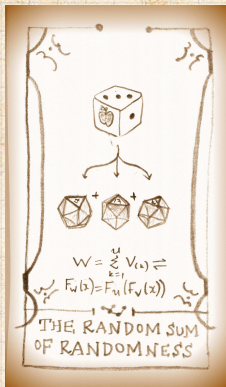 W = Σ V(k) ⇌
u
k=1
F_W(x)=F_u(F_V(x))
THE RANDOM SUM
OF RANDOMNESS